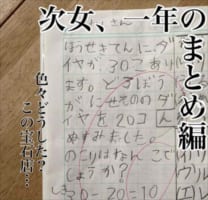 次女、一年の
まとめ編
色々どうした?
この宝石店…
さん
ほうせきてんに、ダ
イヤが30こあり
ます。どろぼう
がにせもののダ
イヤを20コ
ぬすみました。
のこりはなんこで
しょうか?
しき
30-20=10